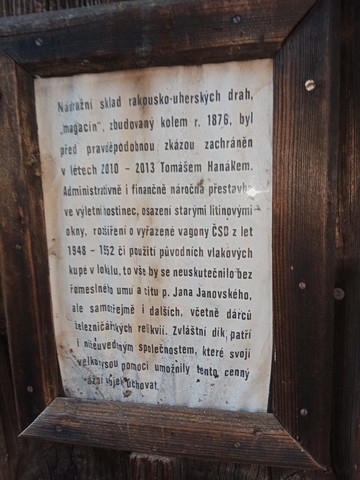 Nádražní sklad rakousko-uherských drah,
„magacín“, zbudovaný kolem r. 1876, byl
před pravděpodobnou zkázou zachráněn
v létech 2010 - 2013 Tomášem Hanákem.
Administrativně i finančně náročná přestavba
ve výletní hostinec, osazení starými litinovými
okny, rozšíření o vyřazené vagony ČSD z let
1948 - 1952 či použití původních vlakových
kupé v lokálu, to vše by se neuskutečnilo bez
řemeslného umu a citu p. Jana Janovského,
ale samozřejmě i dalších, včetně dárců
železničářských relikvií. Zvláštní dík patří
i níže uvedeným společnostem, které svojí
velkorysou pomocí umožnily tento cenný
uchovat.